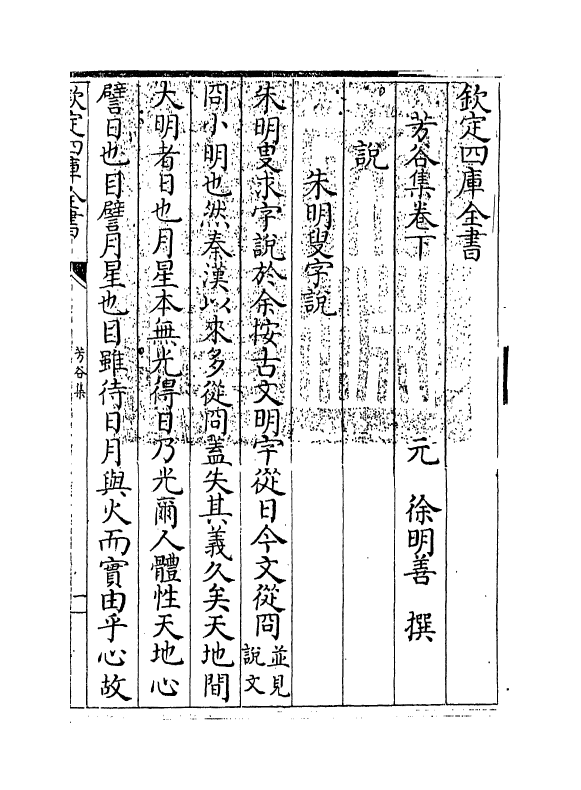 欽定四庫全書
芳谷集卷下
元 徐明善 撰
說
朱明叟字說
朱明叟求字說於余按古文明字從日今文從冏並見說文
冏小明也然秦漢以來多從冏蓋失其義久矣天地間
大明者日也月星本無光得日乃光爾人體性天地心
譬日也目譬月星也目雖待日月與火而實由乎心故
欽定四庫全書
芳谷集
一